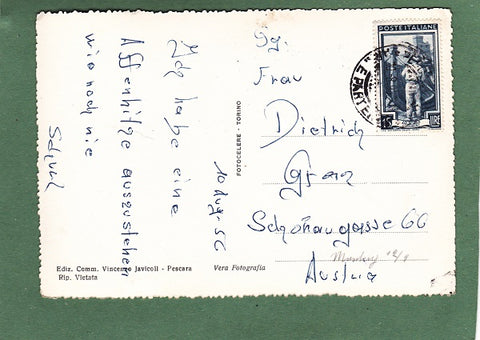 10 Aug. 56
Ich habe eine
Affenhitze auszustehen
wie noch nie
POSTE ITALIANE
LIRE
Sg.
Frau
Dietrich
Graz
Schönaugasse 66
Austria
FOTOCELERE - TORINO
Ediz. Comm. Vincenzo Javicoli - Pescara
Rip. Vietata
Vera Fotografia